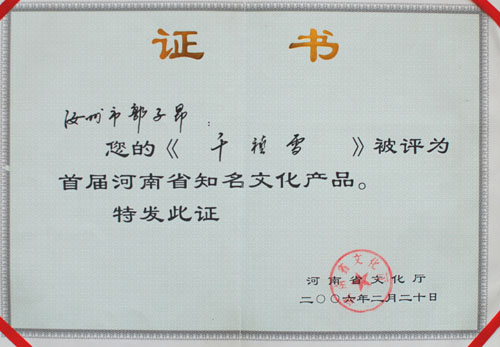 证 书
汝州市 子昂：
您的《千 雪》被评为
首届河南省知名文化产品。
特发此证
河南省文化厅
二〇〇六年二月二十日